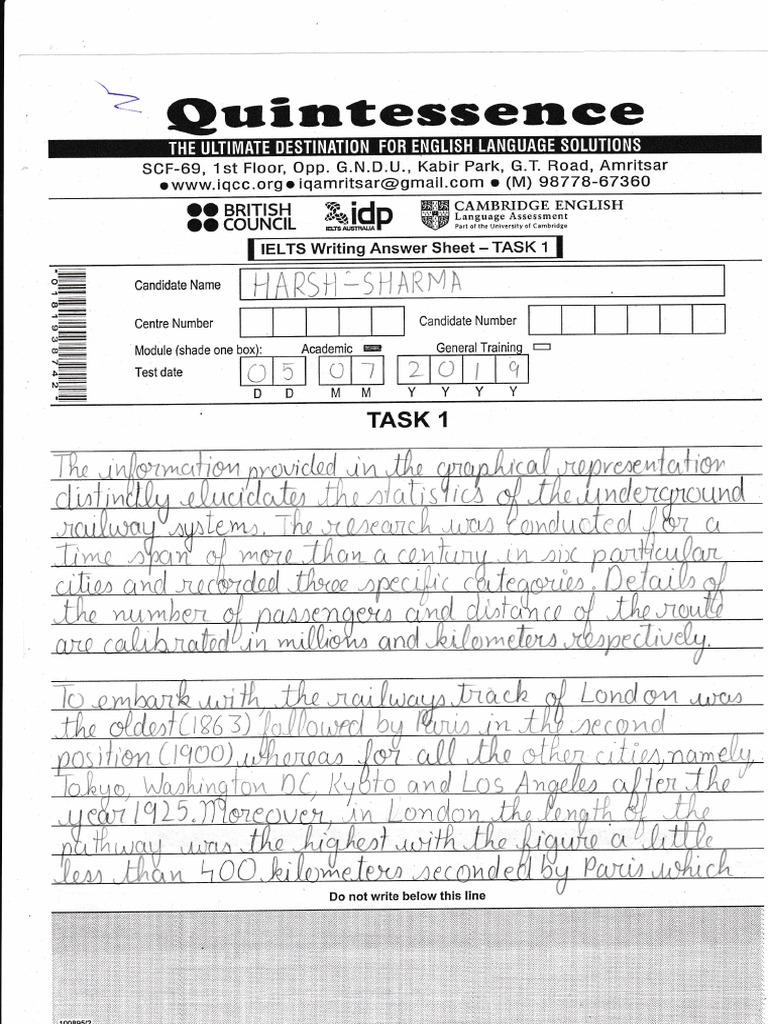 Quintessence
THE ULTIMATE DESTINATION FOR ENGLISH LANGUAGE SOLUTIONS
SCF-69, 1st Floor, Opp. G.N.D.U., Kabir Park, G.T. Road, Amritsar
● www.iqcc.org ● iqamritsar@gmail.com ● (M) 98778-67360
BRITISH COUNCIL
idp
IELTS AUSTRALIA
CAMBRIDGE ENGLISH
Language Assessment
Part of the University of Cambridge
IELTS Writing Answer Sheet – TASK 1
Candidate Name HARSH-SHARMA
Centre Number Candidate Number
Module (shade one box): Academic General Training
Test date 05 07 2019
D D M M Y Y Y Y
*0181938742*
TASK 1
The information provided in the graphical representation
distinctly elucidates the statistics of the underground
railway systems. The research was conducted for a
time span of more than a century in six particular
cities and recorded three specific categories. Details of
the number of passengers and distance of the route
are calibrated in millions and kilometers respectively.
To embark with the railways track of London was
the oldest (1863) followed by Paris in the second
position (1900), whereas for all the other cities, namely,
Tokyo, Washington DC, Kyoto and Los Angeles after the
year 1925. Moreover, in London the length of the
pathway was the highest with the figure a little
less than 400 kilometers seconded by Paris which
Do not write below this line
100895/2